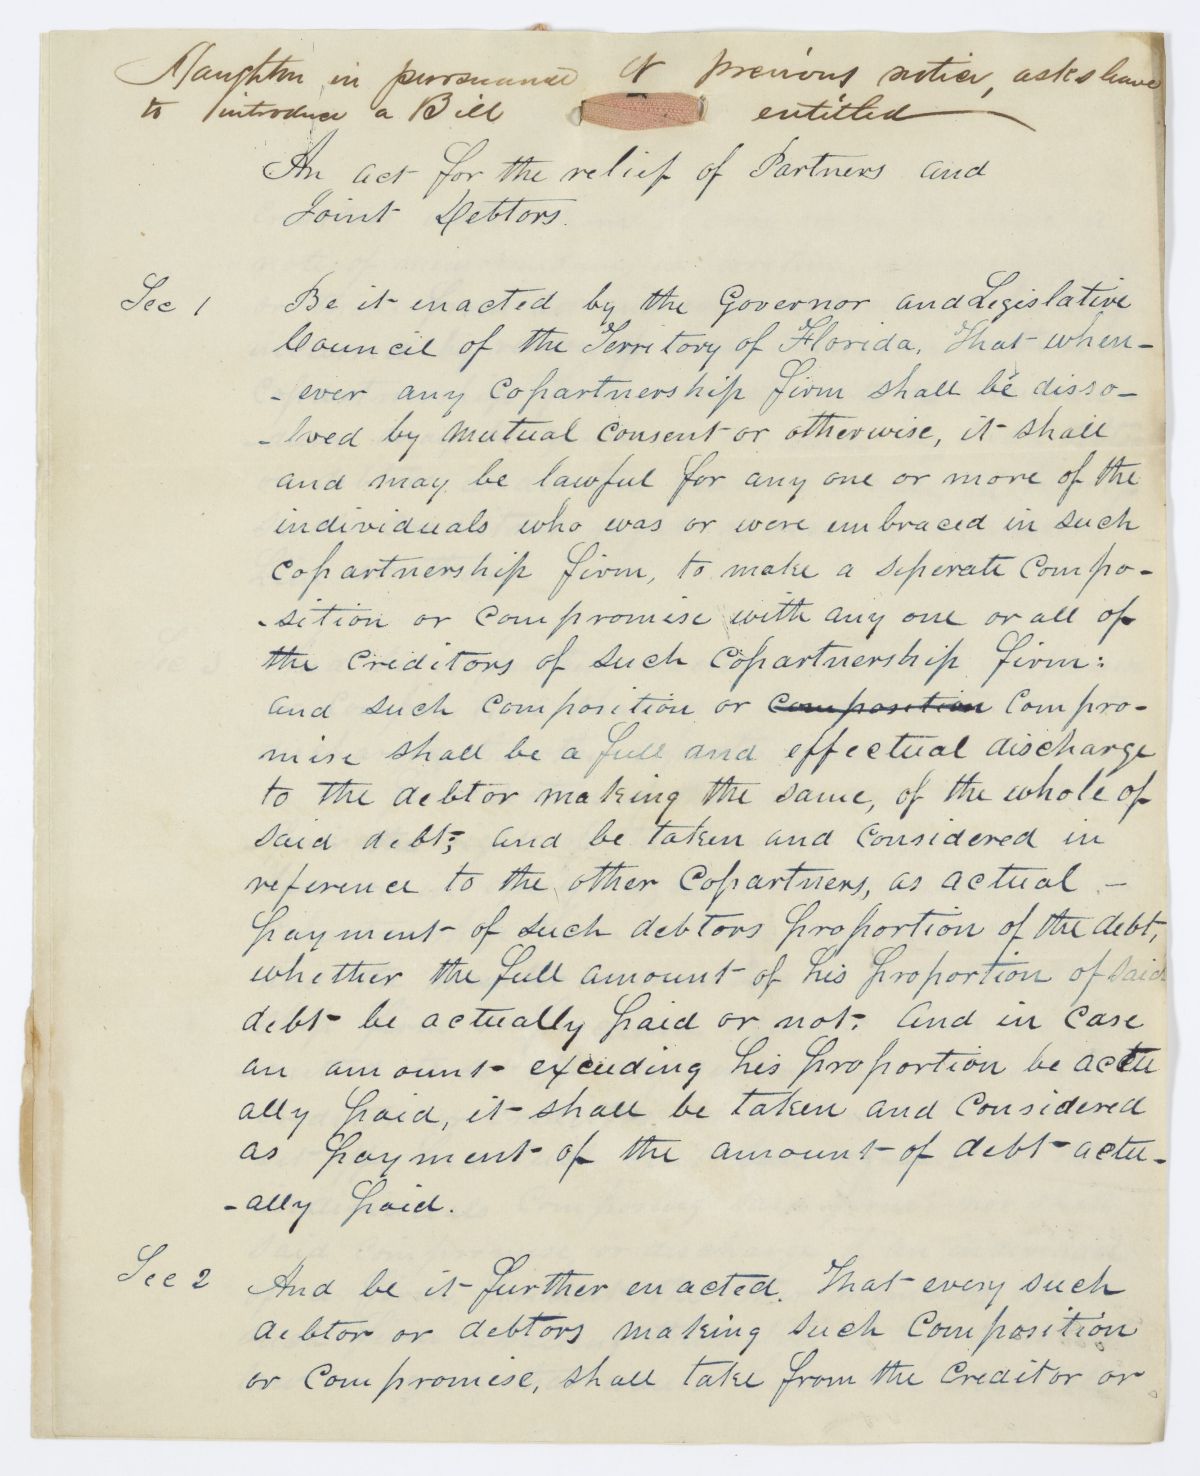 Naughton in pursuance of previous notice, asks leave
to introduce a Bill entitled
An act for the relief of Partners and
Joint Debtors.
Sec 1 Be it enacted by the Governor and Legislative
Council of the Territory of Florida, That when-
-ever any Copartnership firm shall be disso-
-lved by mutual consent or otherwise, it shall
and may be lawful for any one or more of the
individuals who was or were embraced in such
Copartnership firm, to make a seperate Compo-
-sition or Compromise with any one or all of
the Creditors of such Copartnership firm:
and such Composition or Composition Compro-
mise shall be a full and effectual discharge
to the debtor making the same, of the whole of
said debt; and be taken and Considered in
reference to the other Copartners, as actual -
payment of such debtors proportion of the debt,
whether the full amount of his proportion of said
debt be actually paid or not: And in Case
an amount exceeding his proportion be actu
ally paid, it shall be taken and Considered
as payment of the amount of debt actu-
-ally paid.
Sec 2 And be it further enacted. That every such
debtor or debtors making such Composition
or Compromise, shall take from the Creditor or